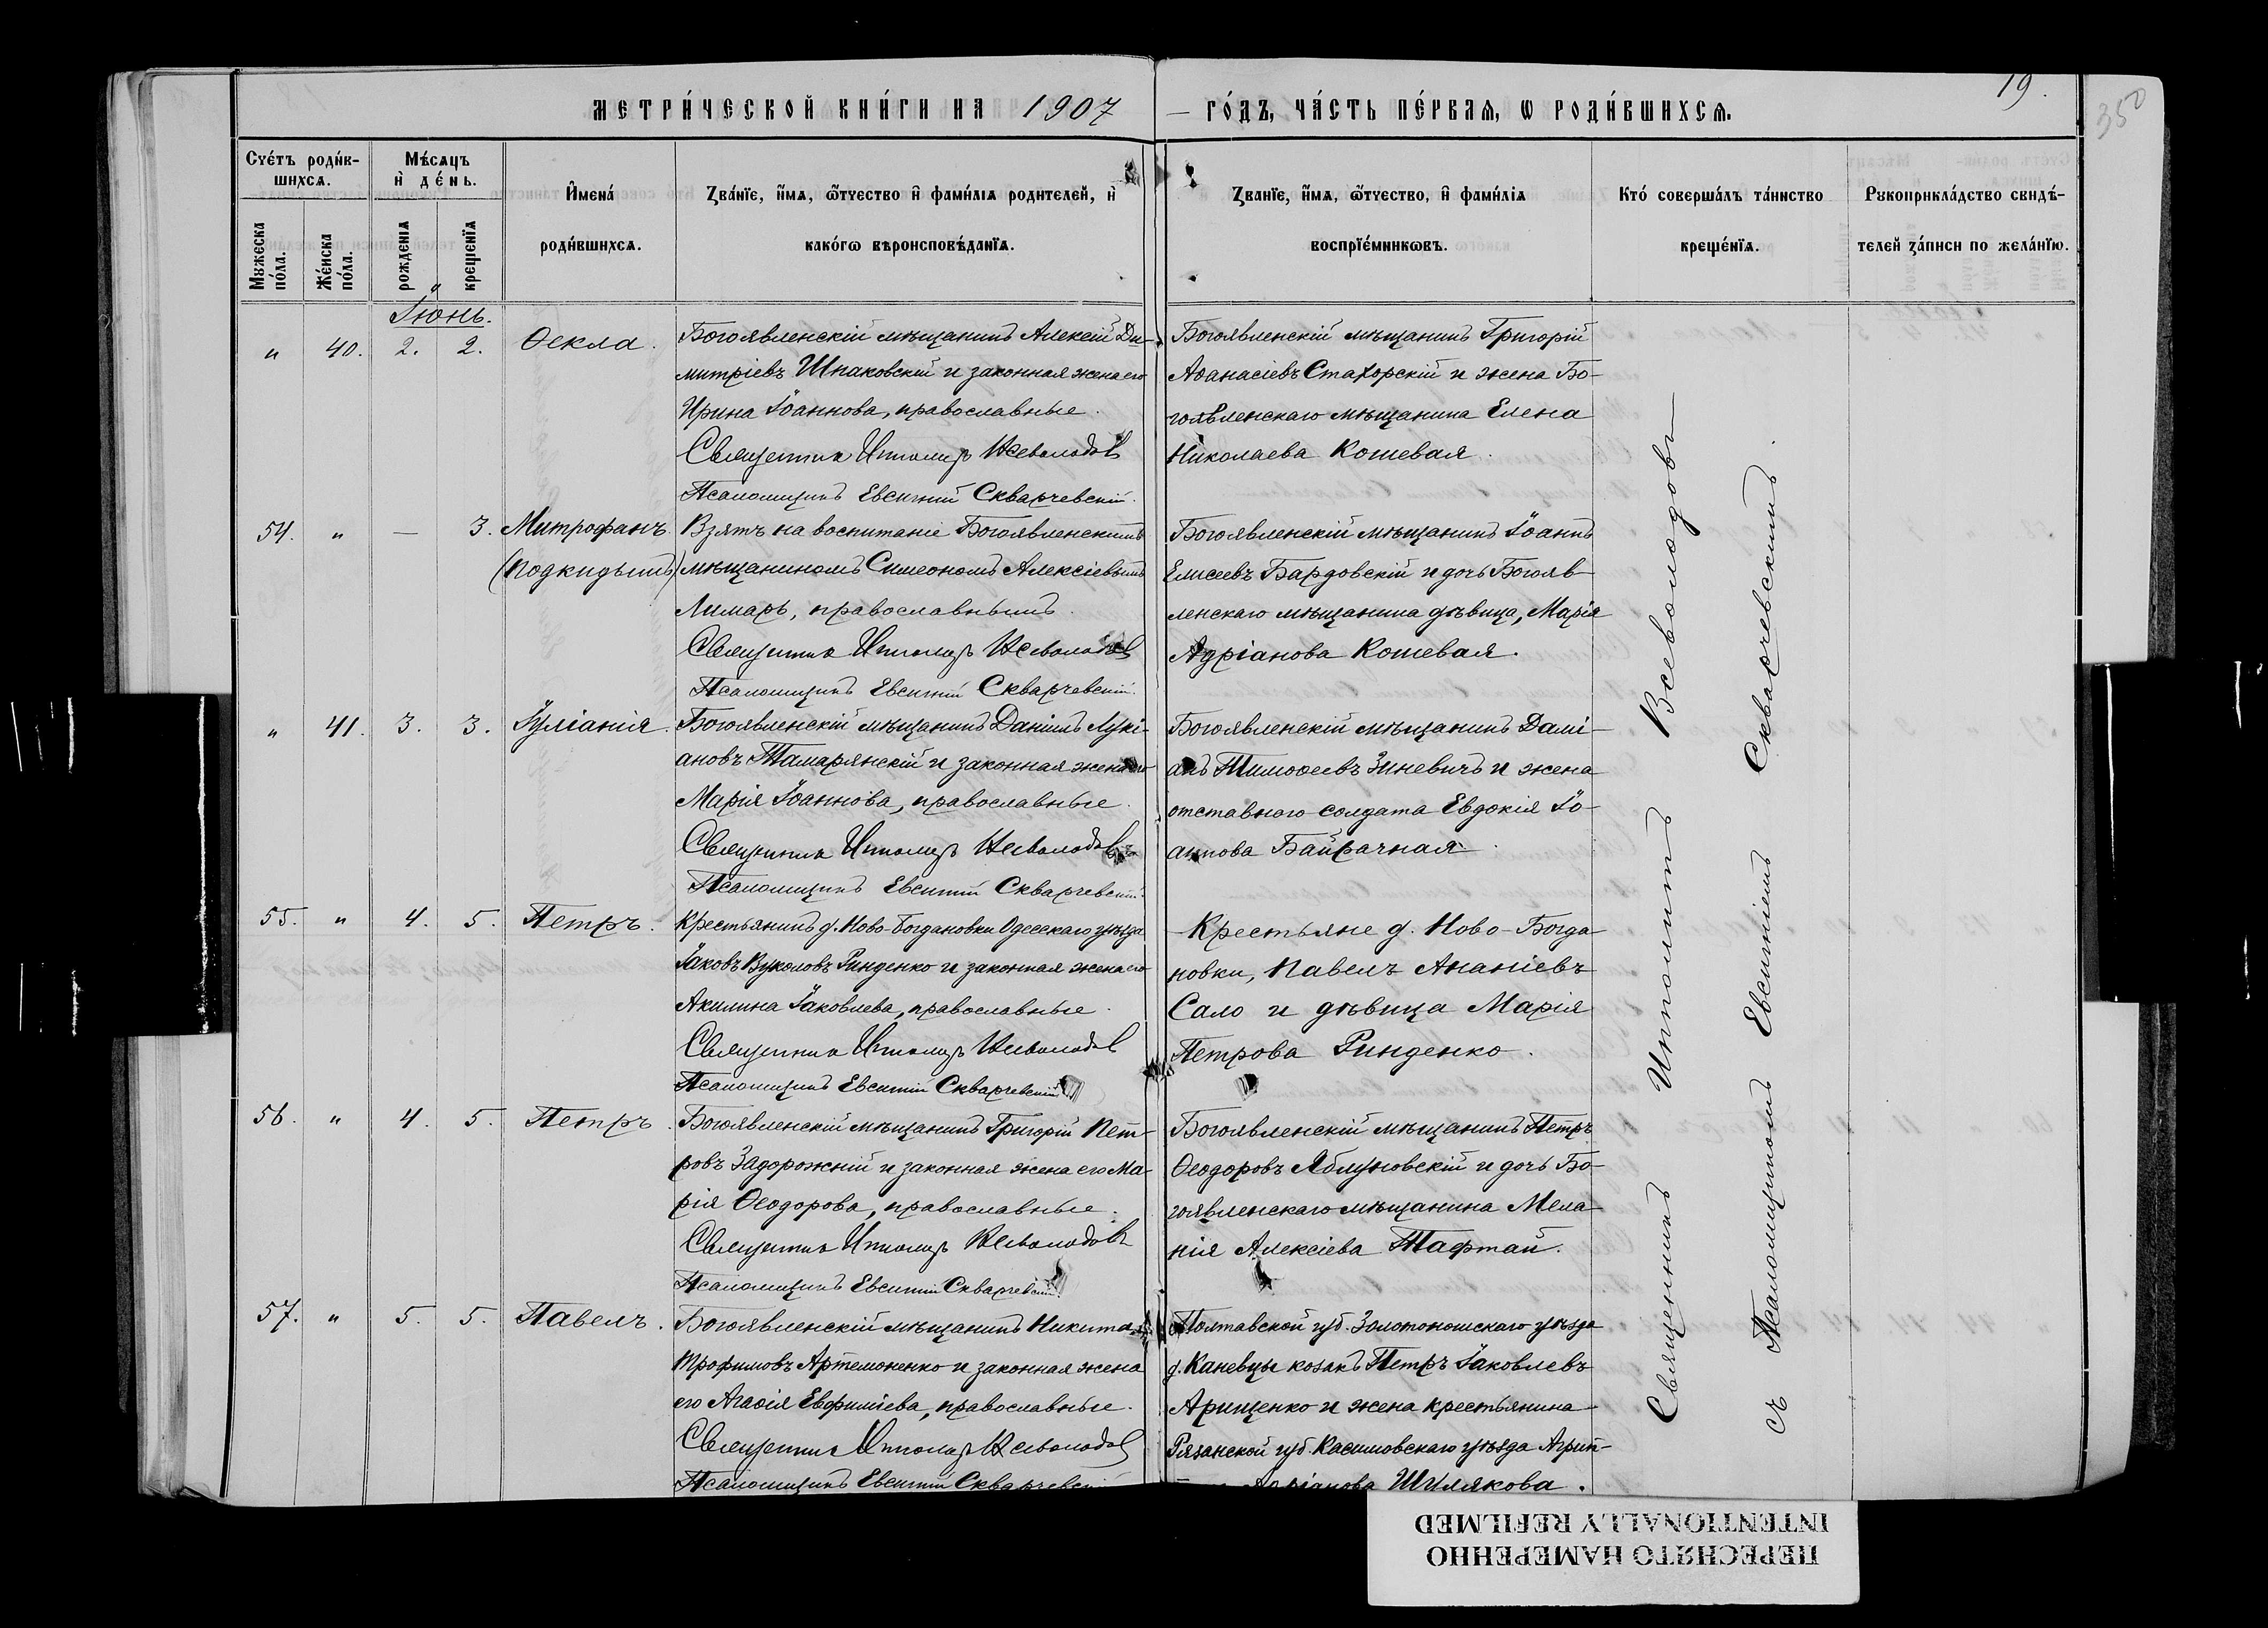 МЕТРИ́ЧЕСКОЙ КНИ́ГИ НА 1907 — ГО́ДЪ, ЧА́СТЬ ПЕ́РВАѦ, Ѡ РОДИ́ВШИХСѦ.
19.
350
Сче́тъ роди́в-
шихсѧ.
Мѣ́сѧцъ
и҆ де́нь.
Мꙋжеска
по́ла.
Же́нска
по́ла.
рожденіѧ
крещенїѧ
И҆мена́
роди́вшихсѧ.
Зва́нїе, и҆́мѧ, ѻ҆́тчество и҆ фами́лїѧ родителей, и҆
како́гѡ вѣроисповѣ́данїѧ.
Зва́нїе, и҆́мѧ, ѻ҆́тчество, и҆ фами́лїѧ
воспрїе́мниковъ.
Кто́ соверша́лъ та́инство
креще́нїѧ.
Рꙋкоприкла́дство свидѣ́-
телей за́писи по жела́нїю.
Іюнь.
„ 40. 2. 2. Ѳекла.
Богоявленскій мѣщанинъ Алексій Ди-
митріевъ Шпаковскій и законная жена его
Ирина Іоаннова, православные.
Священник Ипполитъ Всеволодов
Псаломщикъ Евсигній Скварчевскій.
Богоявленскій мѣщанинъ Григорій
Аѳанасіевъ Стахорскій и жена Бо-
гоявленскаго мѣщанина Елена
Николаева Кошевая.
54. „ — 3. Митрофанъ
(подкидышъ)
Взятъ на воспитаніе Богоявленскимъ
мѣщаниномъ Симеономъ Алексіевымъ
Лимарь, православнымъ.
Священник Ипполитъ Всеволодов
Псаломщикъ Евсигній Скварчевскій.
Богоявленскій мѣщанинъ Іоаннъ
Елисеевъ Бардовскій и дочь Богояв-
ленскаго мѣщанина дѣвица, Марія
Адріанова Кошевая.
„ 41. 3. 3. Іуліанія.
Богоявленскій мѣщанинъ Даніилъ Лукі-
ановъ Тамарянскій и законная жена его
Марія Іоаннова, православные.
Священник Ипполитъ Всеволодовъ
Псаломщикъ Евсигній Скварчевскій.
Богоявленскій мѣщанинъ Дамі-
анъ Тимоѳеевъ Зиневичъ и жена
отставного солдата Евдокія Іо-
аннова Байрачная.
55. „ 4. 5. Петръ.
Крестьянинъ д. Ново-Богдановки Одесскаго уѣзда
Іаковъ Вуколовъ Ринденко и законная жена его
Акилина Іаковлева, православные.
Священник Ипполитъ Всеволодов
Псаломщикъ Евсигній Скварчевскій
Крестьяне д. Ново-Богда-
новки, Павелъ Ананіевъ
Сало и дѣвица Марія
Петрова Ринденко.
56. „ 4. 5. Петръ.
Богоявленскій мѣщанинъ Григорій Пет-
ровъ Задорожній и законная жена его Ма-
рія Ѳеодорова, православные.
Священник Ипполитъ Всеволодов
Псаломщикъ Евсигній Скварчевскій
Богоявленскій мѣщанинъ Петръ
Ѳеодоровъ Яблуновскій и дочь Бо-
гоявленскаго мѣщанина Мела-
нія Алексіева Тафтай.
57. „ 5. 5. Павелъ.
Богоявленскій мѣщанинъ Никита
Трофимовъ Артемоненко и законная жена
его Агаѳія Евфиміева, православные.
Священник Ипполитъ Всеволодов
Псаломщикъ Евсигній Скварчевскій
Полтавской губ. Золотоношскаго уѣзда
д. Каневцы козакъ Петръ Іаковлевъ
Арищенко и жена крестьянина
Рязанской губ. Касимовскаго уѣзда Агрип-
Адріанова Шилякова.
Священникъ Ипполитъ Всеволодовъ
съ Псаломщикомъ Евсигніемъ Скварчевскимъ.
ПЕРЕСНЯТО НАМЕРЕННО
INTENTIONALLY REFILMED